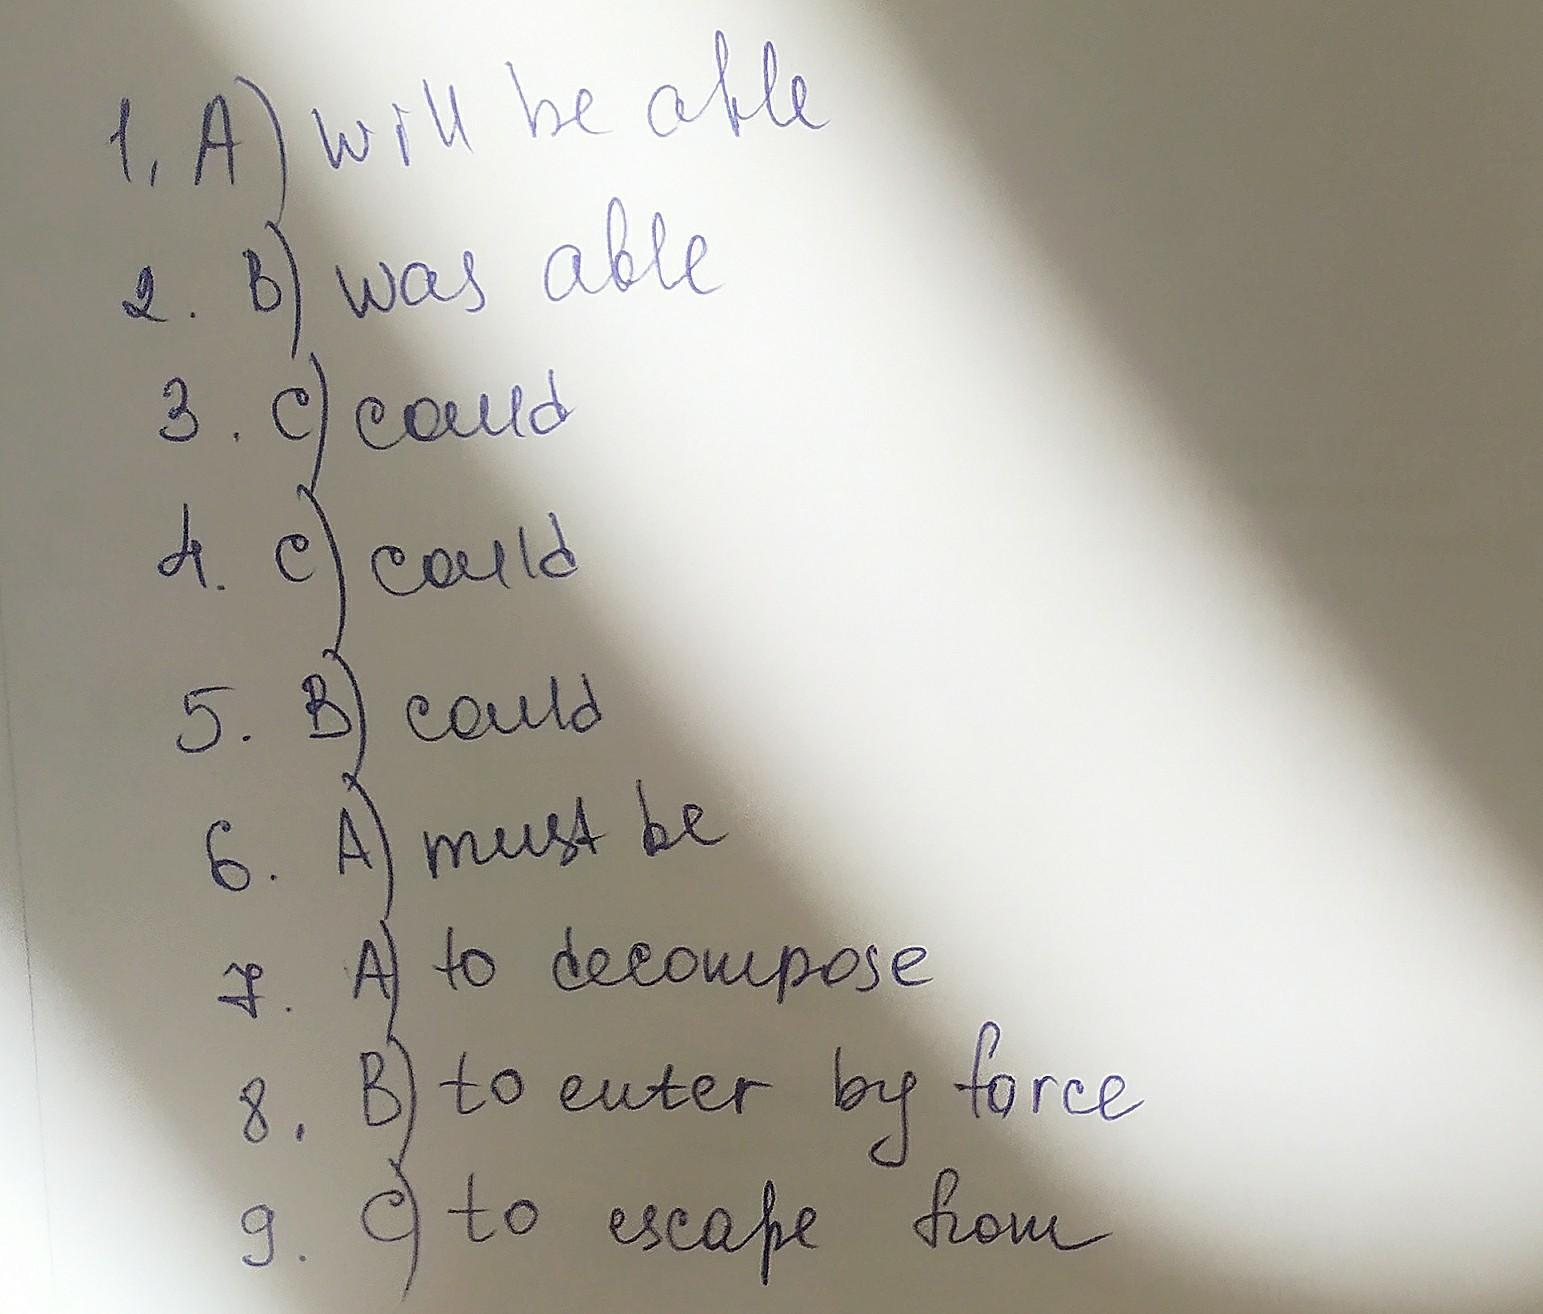 1. A) will be able
2. B) was able
3. C) could
4. C) could
5. B) could
6. A) must be
7. A) to decompose
8. B) to enter by force
9. C) to escape from